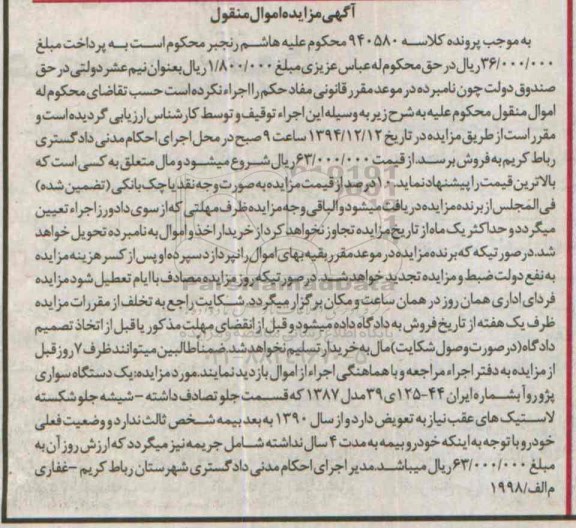 آگهی مزایده اموال منقول
به موجب پرونده کلاسه ۹۴۰۵۸۰ محکوم علیه هاشم رنجبر محکوم است به پرداخت مبلغ
۳۶/۰۰۰/۰۰۰ ریال در حق محکوم له عباس عزیزی مبلغ ۱/۸۰۰/۰۰۰ ریال بعنوان نیم عشر دولتی در حق
صندوق دولت چون نامبرده در موعد مقرر قانونی مفاد حکم را اجراء نکرده است حسب تقاضای محکوم له
اموال منقول محکوم علیه به شرح زیر به وسیله این اجراء توقیف و توسط کارشناس ارزیابی گردیده است و
مقرر است از طریق مزایده در تاریخ ۱۳۹۴/۱۲/۱۲ ساعت ۹ صبح در محل اجرای احکام مدنی دادگستری
رباط کریم به فروش برسد. از قیمت ۶۳/۰۰۰/۰۰۰ ریال شروع میشود و مال متعلق به کسی است که
بالاترین قیمت را پیشنهاد نماید. ۱۰ درصد از قیمت مزایده به صورت وجه نقد یا چک بانکی (تضمین شده)
فی المجلس از برنده مزایده دریافت میشود و الباقی وجه مزایده ظرف مهلتی که از سوی دادورز اجراء تعیین
میگردد و حداکثر یک ماه از تاریخ مزایده تجاوز نخواهد کرد از خریدار اخذ و اموال به نامبرده تحویل خواهد
شد. در صورتیکه که برنده مزایده در موعد مقرر بقیه بهای اموال را نپردازد سپرده او پس از کسر هزینه مزایده
به نفع دولت ضبط و مزایده تجدید خواهد شد. در صورتیکه روز مزایده مصادف با ایام تعطیل شود مزایده
فردای اداری همان روز در همان ساعت و مکان برگزار میگردد. شکایت راجع به تخلف از مقررات مزایده
ظرف یک هفته از تاریخ فروش به دادگاه داده میشود و قبل از انقضای مهلت مذکور یا قبل از اتخاذ تصمیم
دادگاه (در صورت وصول شکایت) مال به خریدار تسلیم نخواهد شد. ضمنا طالبین میتوانند ظرف ۷ روز قبل
از مزایده به دفتر اجراء مراجعه و با هماهنگی اجراء از اموال بازدید نمایند. مورد مزایده: یک دستگاه سواری
پژو روآ بشماره ایران ۴۴-۱۲۵ی۳۹ مدل ۱۳۸۷ که قسمت جلو تصادف داشته - شیشه جلو شکسته
لاستیک های عقب نیاز به تعویض دارد و از سال ۱۳۹۰ به بعد بیمه شخص ثالث ندارد و وضعیت فعلی
خودرو با توجه به اینکه خودرو بیمه به مدت ۴ سال نداشته شامل جریمه نیز میگردد که ارزش روز آن به
مبلغ ۶۳/۰۰۰/۰۰۰ ریال میباشد. مدیر اجرای احکام مدنی دادگستری شهرستان رباط کریم - غفاری
م الف/۱۹۹۸